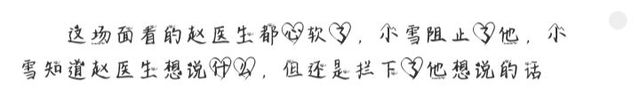 这场面看的赵医生都心软了，小雪阻止了他，小
雪知道赵医生想说什么，但还是拦下了他想说的话